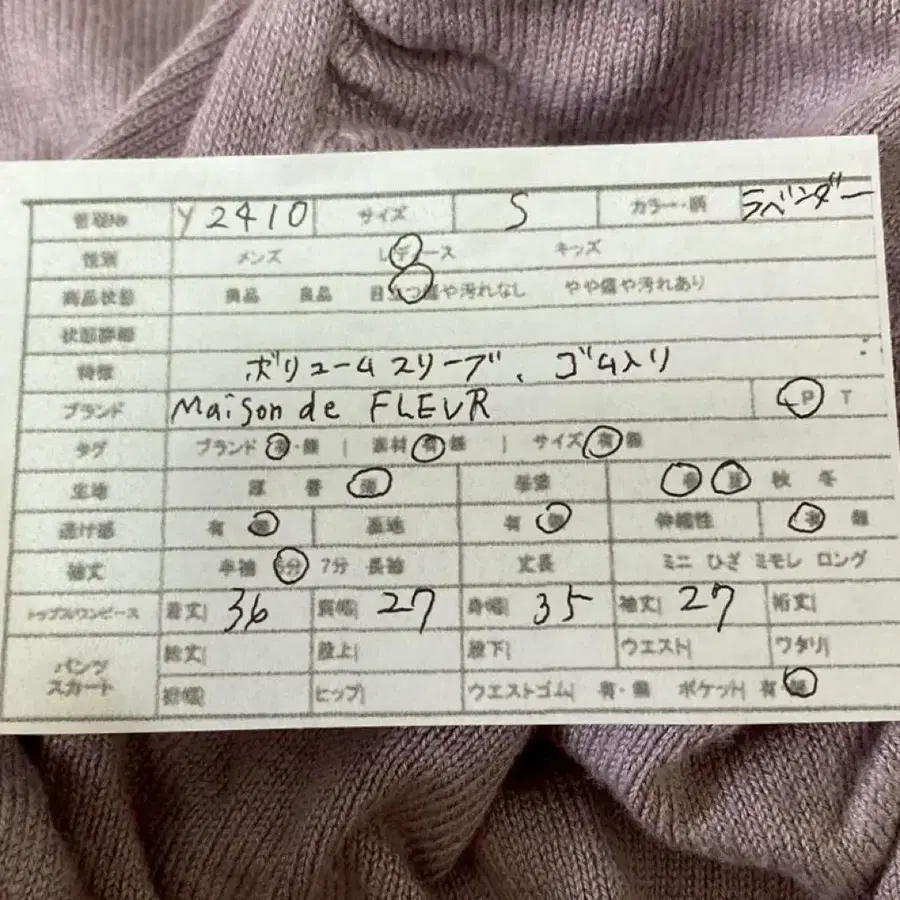 管理No Y2410 サイズ S カラー・柄 ラベンダー
性別 メンズ レディース キッズ
商品状態 美品 良品 目立つ傷や汚れなし やや傷や汚れあり
状態詳細
特徴 ボリュームスリーブ、ゴム入り
ブランド Maison de FLEUR P T
タグ ブランド 有・無 | 素材 有 無 | サイズ 有 無
生地 厚 普 薄 季節 春 夏 秋 冬
透け感 有 無 裏地 有 無 伸縮性 有 無
袖丈 半袖 5分 7分 長袖 丈長 ミニ ひざ ミモレ ロング
トップス/ワンピース 着丈 36 肩幅 27 身幅 35 袖丈 27 裄丈
パンツ スカート 総丈 股上 股下 ウエスト ワタリ
裾幅 ヒップ ウエストゴム 有・無 ポケット 有・無